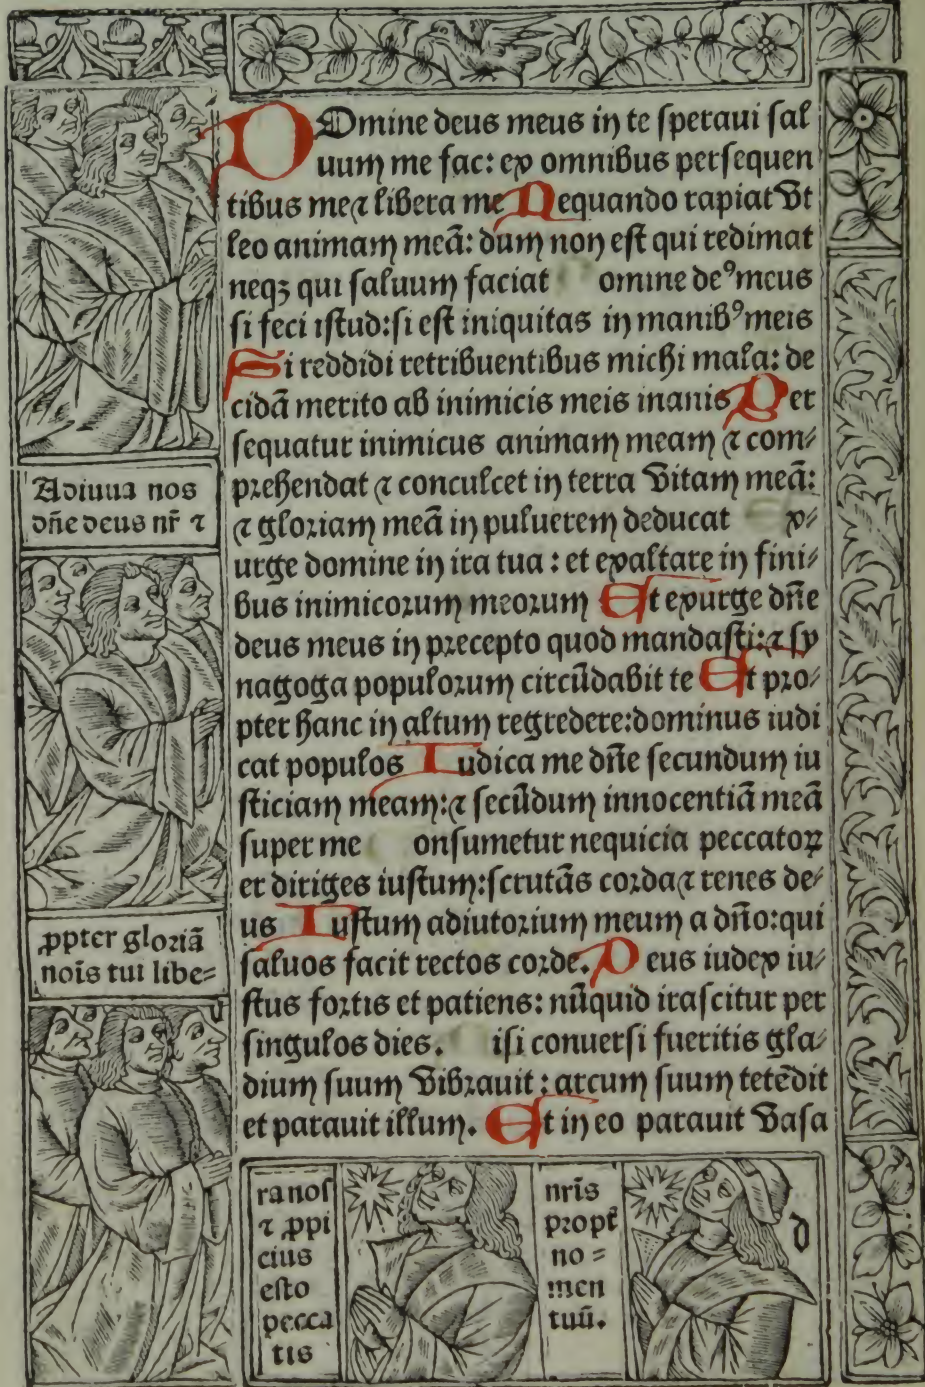 DOmine deus meus in te speraui sal
uum me fac: ex omnibus persequen
tibus me ⁊ libera me Nequando rapiat vt
leo animam meā: dum non est qui redimat
neqꝫ qui saluum faciat omine deꝰ meus
si feci istud: si est iniquitas in manibꝰ meis
Si reddidi retribuentibus michi mala: de
cidā merito ab inimicis meis inanis Per
sequatur inimicus animam meam ⁊ com⸗
prehendat ⁊ conculcet in terra vitam meā:
⁊ gloriam meā in puluerem deducat Ex⸗
urge domine in ira tua : et exaltare in fini⸗
bus inimicorum meorum Et exurge dn̄e
deus meus in precepto quod mandasti: ⁊ sy
nagoga populorum circūdabit te Et pro⸗
pter hanc in altum regredere: dominus iudi
cat populos Iudica me dn̄e secundum iu
sticiam meam: ⁊ secūdum innocentiā meā
super me onsumetur nequicia peccatoꝝ
et diriges iustum: scrutās corda ⁊ renes de⸗
us Iustum adiutorium meum a dn̄o: qui
saluos facit rectos corde. Deus iudex iu⸗
stus fortis et patiens: nūquid irascitur per
singulos dies. isi conuersi fueritis gla⸗
dium suum vibrauit : arcum suum tetēdit
et parauit illum. Et in eo parauit vasa
Adiuua nos
dn̄e deus nr̄ ⁊
ꝓpter gloriā
noīs tui libe=
ra nos
⁊ ꝓpi
cius
esto
pecca
tis
nr̄is
propt̄
no =
men
tuū.
d